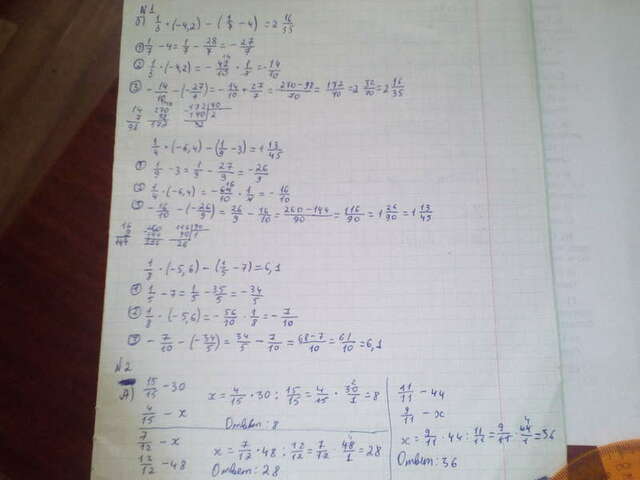 №1
б) 1/3 · (-4,2) - (1/7 - 4) = 2 16/35
① 1/7 - 4 = 1/7 - 28/7 = -27/7
② 1/3 · (-4,2) = -42/10 · 1/3 = -14/10
③ -14/10 - (-27/7) = -14/10 + 27/7 = 270-98/70 = 172/70 = 2 32/70 = 2 16/35
1/4 · (-6,4) - (1/9 - 3) = 1 13/45
① 1/9 - 3 = 1/9 - 27/9 = -26/9
② 1/4 · (-6,4) = -64/10 · 1/4 = -16/10
③ -16/10 - (-26/9) = 26/9 - 16/10 = 260-144/90 = 116/90 = 1 26/90 = 1 13/45
1/8 · (-5,6) - (1/5 - 7) = 6,1
① 1/5 - 7 = 1/5 - 35/5 = -34/5
② 1/8 · (-5,6) = -56/10 · 1/8 = -7/10
③ -7/10 - (-34/5) = 34/5 - 7/10 = 68-7/10 = 61/10 = 6,1
№2
А) 15/15 - 30
4/15 - x
x = 4/15 · 30 : 15/15 = 4/15 · 30/1 = 8
Ответ: 8
7/12 - x
12/12 - 48
x = 7/12 · 48 : 12/12 = 7/12 · 48/1 = 28
Ответ: 28
11/11 - 44
9/11 - x
x = 9/11 · 44 : 11/11 = 9/11 · 44/1 = 36
Ответ: 36